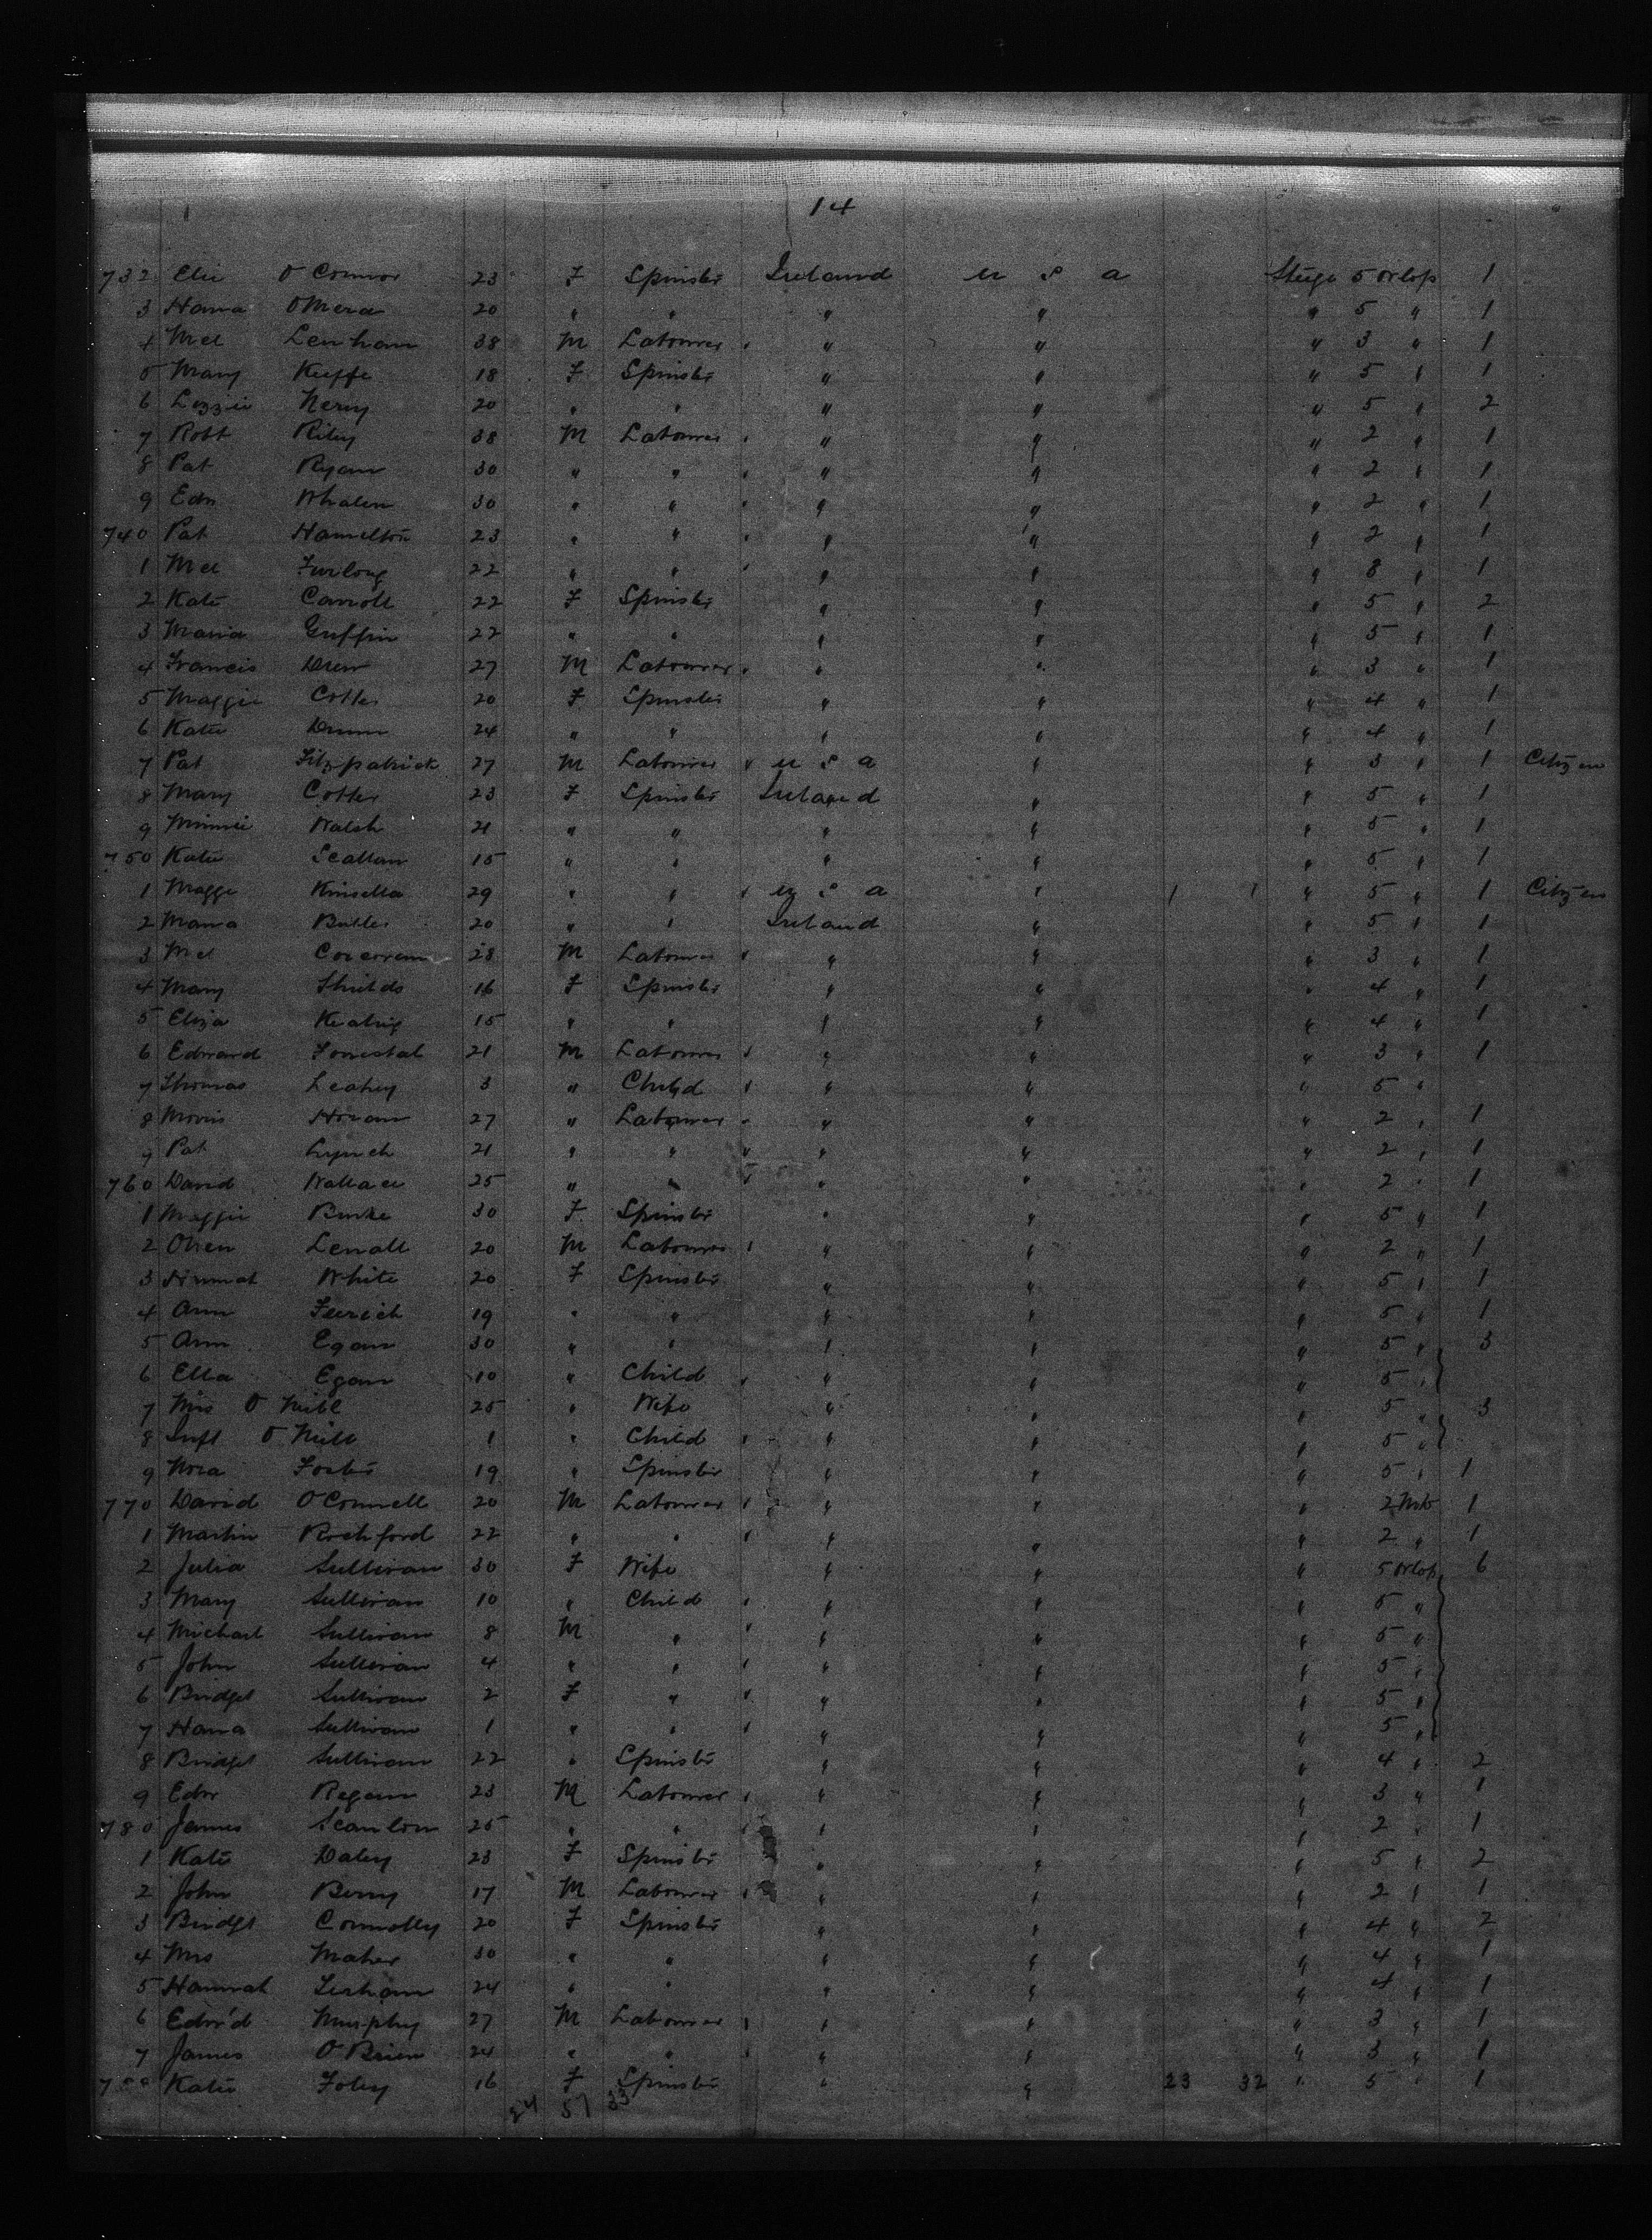 14
732 Elie O Connor 23 F Spinster Ireland U S A Steige 5 Orlop 1
3 Hana OMera 20 " " " " " 5 " 1
4 Mel Lenham 38 M Labourer " " " " 3 " 1
5 Mary Keeffe 18 F Spinster " " " 5 " 1
6 Lizzie Nery 20 " " " " " 5 " 2
7 Robt Riley 38 M Labourer " " " " 2 " 1
8 Pat Ryan 30 " " " " " " 2 " 1
9 Edw Whalen 30 " " " " " 2 " 1
740 Pat Hamelton 23 " " " " " " 2 " 1
1 Mel Furlong 22 " " " " " " 8 " 1
2 Kate Carroll 22 F Spinster " " " 5 " 2
3 Maria Griffin 22 " " " " " 5 " 1
4 Francis Drew 27 M Labourer " " " " 3 " 1
5 Maggie Cotter 20 F Spinster " " " 4 " 1
6 Katie Drum 24 " " " " " 4 " 1
7 Pat Fitzpatrick 27 M Labourer " U S A " " 3 " 1 Citizen
8 Mary Cotter 23 F Spinster Ireland " " 5 " 1
9 Minnie Walsh 21 " " " " " 5 " 1
750 Katie Scallan 15 " " " " " 5 " 1
1 Maggie Kinsella 29 " " " U S A " 1 1 " 5 " 1 Citizen
2 Maria Butler 20 " " Ireland " " 5 " 1
3 Mel Corcoran 28 M Labourer " " " " 3 " 1
4 Mary Shields 16 F Spinster " " " 4 " 1
5 Eliza Keating 15 " " " " " 4 " 1
6 Edward Forrestal 21 M Labourer " " " " 3 " 1
7 Thomas Leahey 3 " Child " " " " 5 "
8 Morris Horan 27 " Labourer " " " " 2 " 1
9 Pat Lynch 21 " " " " " " 2 " 1
760 David Wallace 25 " " " " " " 2 " 1
1 Maggie Burke 30 F Spinster " " " 5 " 1
2 Owen Lenall 20 M Labourer " " " " 2 " 1
3 Hannah White 20 F Spinster " " " 5 " 1
4 Ann 19 " " " " " 5 " 1
5 Ann Egan 30 " " " " " 5 " 3
6 Ella Egan 10 " Child " " " " 5 "
7 Mrs O Niell 25 " Wife " " " 5 " 3
8 Inft O Niell 1 " Child " " " " 5 "
9 Nora 19 " Spinster " " " 5 " 1
770 David O'Connell 20 M Labourer " " " " 2 Mn 1
1 Martin Rochford 22 " " " " " " 2 " 1
2 Julia Sullivan 30 F Wife " " " 5 Orlop 6
3 Mary Sullivan 10 " Child " " " " 5 "
4 Michael Sullivan 8 M " " " " " 5 "
5 John Sullivan 4 " " " " " " 5 "
6 Bridget Sullivan 2 F " " " " " 5 "
7 Hana Sullivan 1 " " " " " " 5 "
8 Bridget Sullivan 22 " Spinster " " " 4 " 2
9 Edw Regan 23 M Labourer " " " " 3 " 1
780 James Scanlon 25 " " " " " " 2 " 1
1 Kate Daley 23 F Spinster " " " 5 " 2
2 John Berry 17 M Labourer " " " " 2 " 1
3 Bridget Connolly 20 F Spinster " " " 4 " 2
4 Mrs Maher 30 " " " " " 4 " 1
5 Hannah 24 " " " " " 4 " 1
6 Edw'd Murphy 27 M Labourer " " " " 3 " 1
7 James O'Brien 24 " " " " " " 3 " 1
788 Katie Foley 16 F Spinster " " 23 32 " 5 " 1
24 57 33